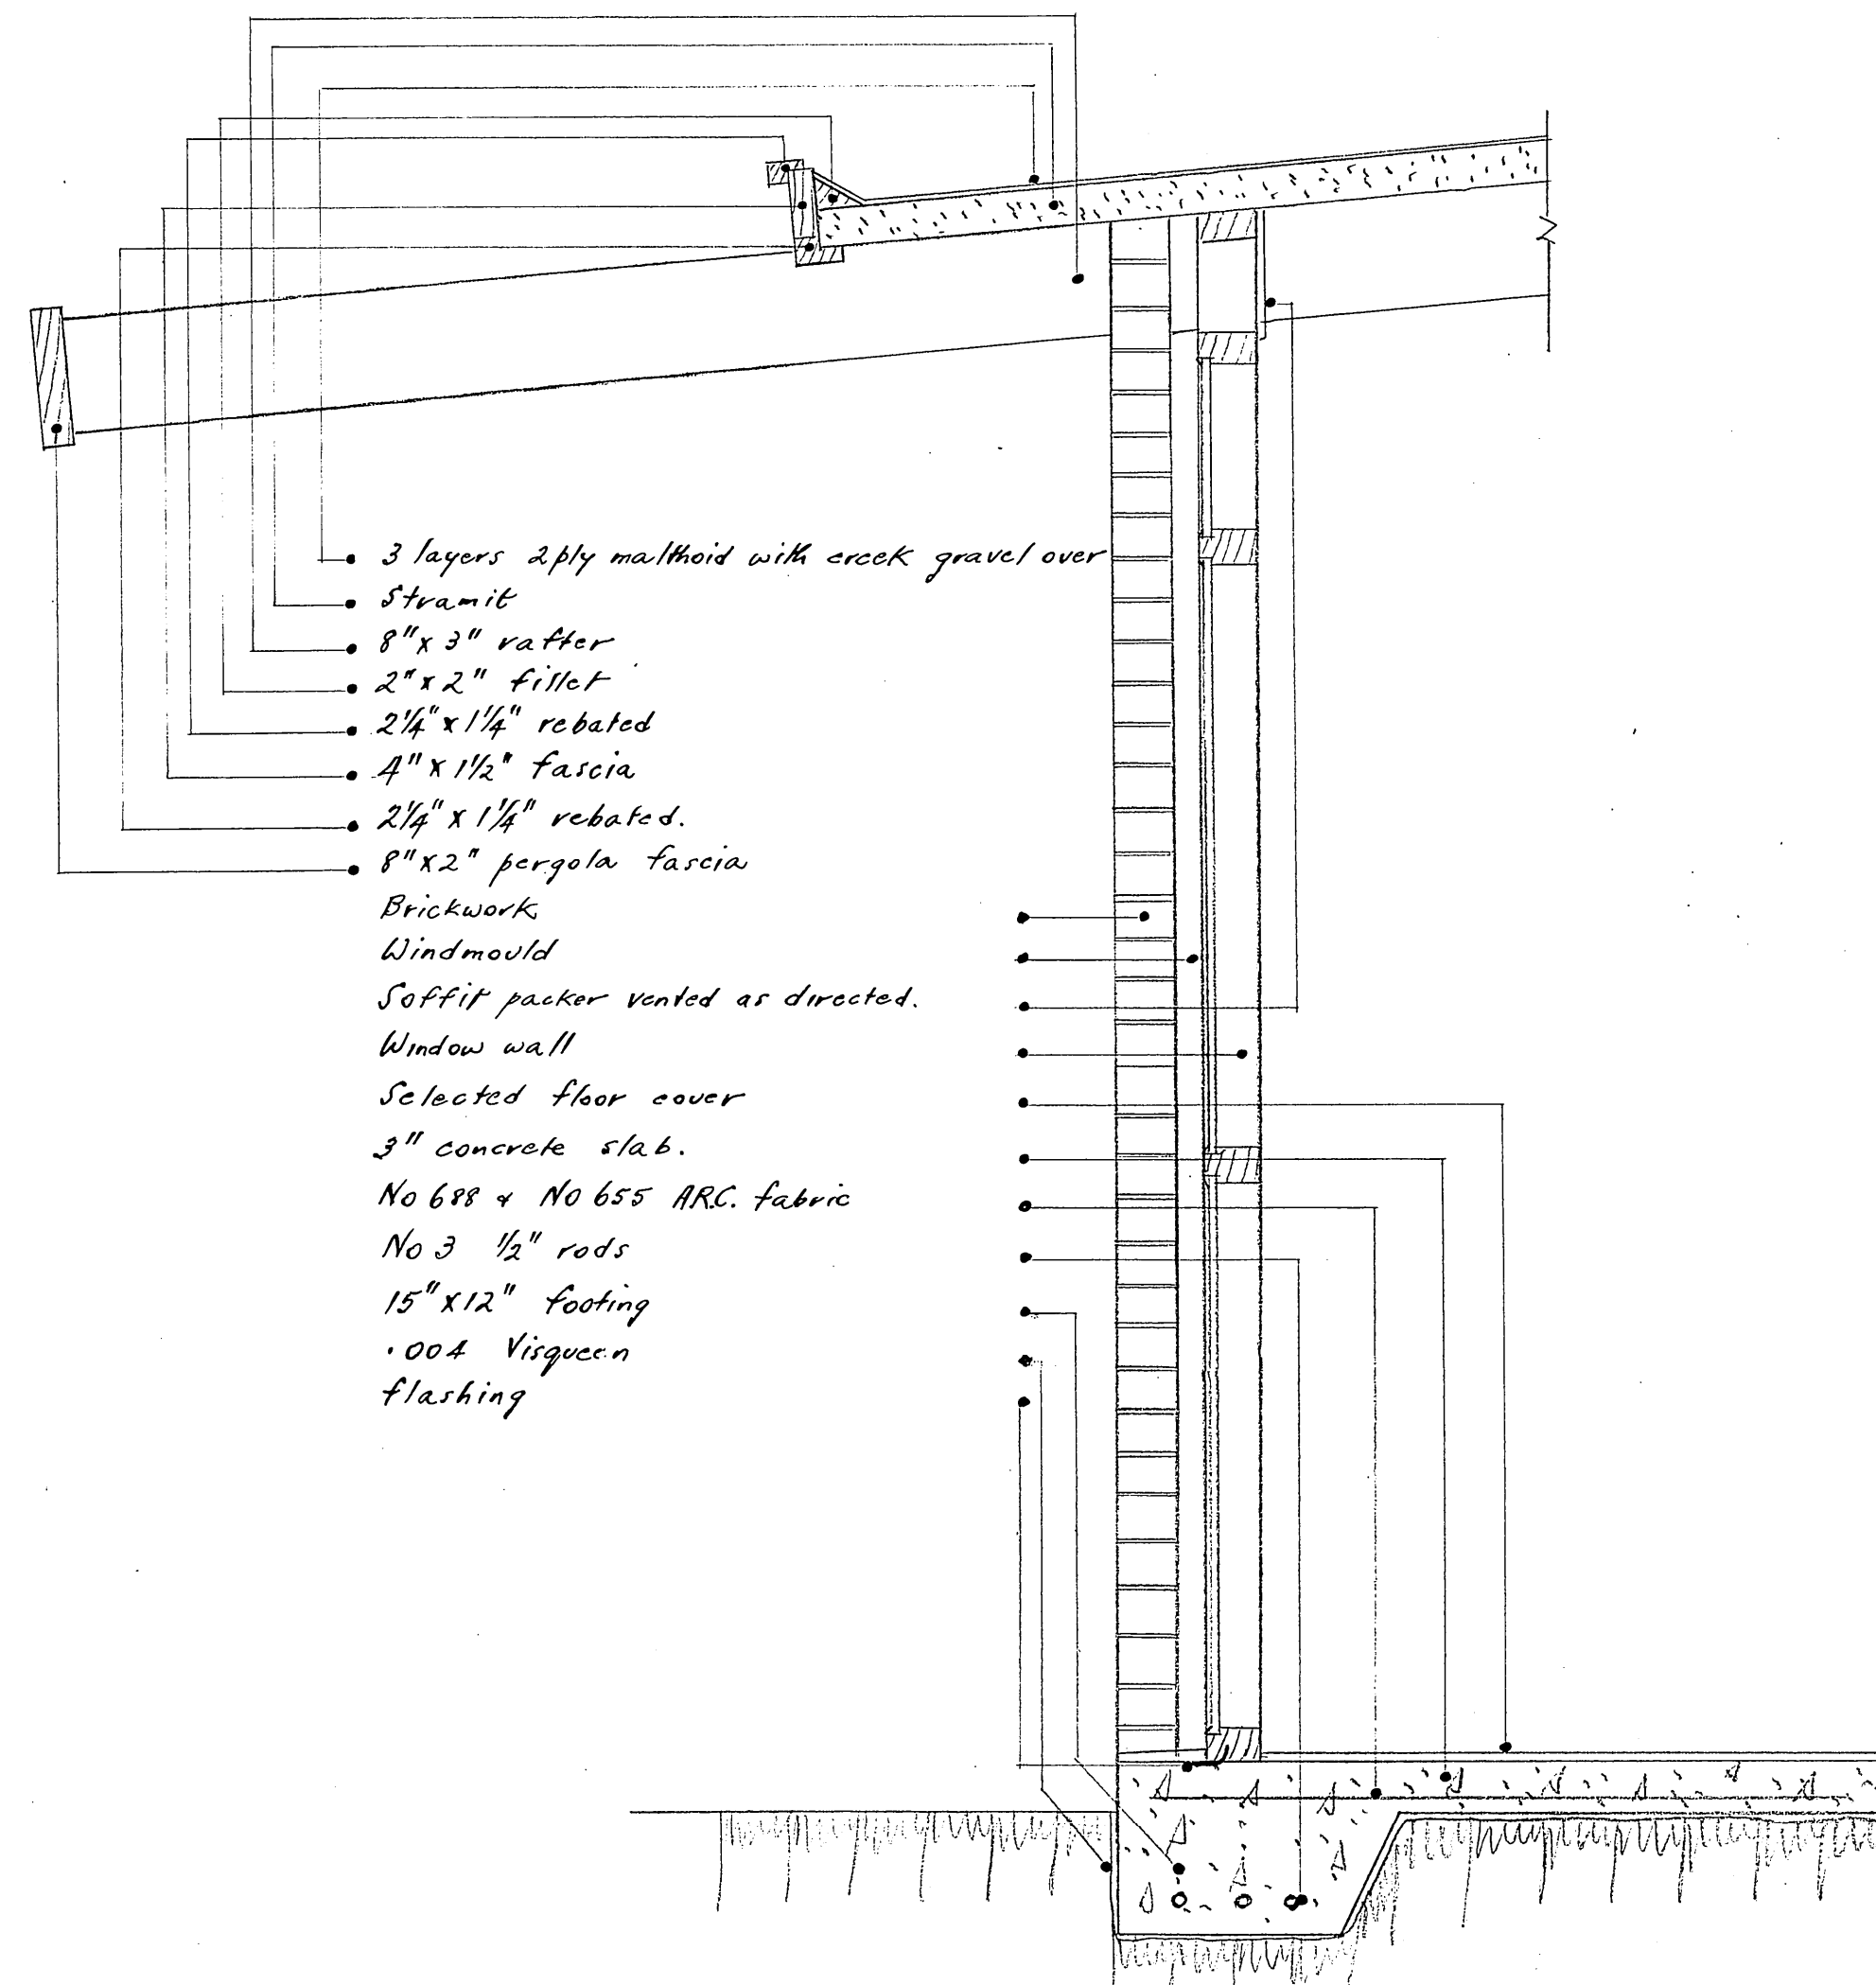 3 layers 2ply malthoid with creek gravel over
Stramit
8"x 3" rafter
2"x 2" fillet
2¼"x 1¼" rebated
4"x 1½" fascia
2¼"x 1¼" rebated.
8"x2" pergola fascia
Brickwork
Windmould
Soffit packer vented as directed.
Window wall
Selected floor cover
3" concrete slab.
No 688 & No 655 A.R.C. fabric
No 3 ½" rods
15"x12" footing
.004 Visqueen
flashing